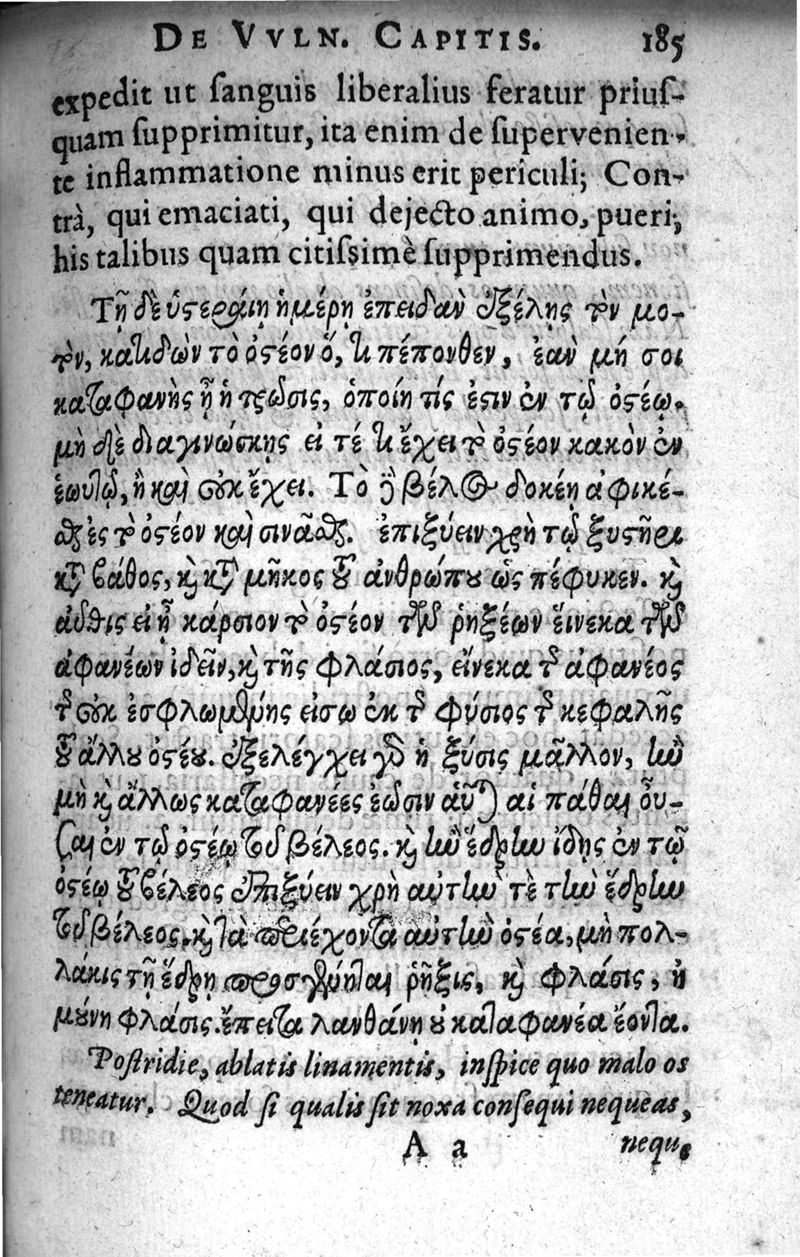 DE VVLN. CAPITIS. 185
expedit ut ſanguis liberalius feratur priuſ-
quam ſupprimitur, ita enim de ſupervenien-
te inflammatione minus erit periculi; Con-
trà, qui emaciati, qui dejecto animo, pueri,
his talibus quam citiſsimè ſupprimendus.
Τῇ δὲ ὑστεραίῃ ἡμέρῃ ἐπειδὰν ἐξέλῃς τὸν μο-
τὸν, κατιδὼν τὸ ὀστέον ὅ, τι πέπονθεν, ἐὰν μή σοι
καταφανὴς ᾖ ἡ τρῶσις, ὁποίη τίς ἐστιν ἐν τῷ ὀστέῳ.
μὴ δὲ διαγινώσκῃς εἰ τέ τι ἔχει τὸ ὀστέον κακὸν ἐν
ἑωυτῷ, ἢ καὶ οὐκ ἔχει. Τὸ δὲ βέλος δοκέῃ ἀφικέ-
σθαι ἐς τὸ ὀστέον καὶ σινᾶσθαι. ἐπιξύειν χρὴ τῷ ξυστῆρι
κατὰ βάθος, καὶ κατὰ μῆκος τοῦ ἀνθρώπου ὡς πέφυκεν. καὶ
αὖθις εἰ ᾖ κάρσιον τὸ ὀστέον τῶν ῥηξέων εἵνεκα τῶν
ἀφανέων ἰδεῖν, καὶ τῆς φλάσιος, εἵνεκα τῆς ἀφανέος
τῆς οὐκ ἐσφλωμένης εἴσω ἐκ τῆς φύσιος τῆς κεφαλῆς
τοῦ ἄλλου ὀστέου. ἐξελέγχει γὰρ ἡ ξύσις μᾶλλον, ἢν
μὴ καὶ ἄλλως καταφανέες ἔωσιν αὗται αἱ πάθαι οὖ-
σαι ἐν τῷ ὀστέῳ τοῦ βέλεος. καὶ ἢν ἕδρην ἴδῃς ἐν τῷ
ὀστέῳ τοῦ βέλεος ἐπιξύειν χρὴ αὐτήν τὲ τὴν ἕδρην
τοῦ βέλεος, καὶ τὰ περιέχοντα αὐτὴν ὀστέα, μὴ πολ-
λάκις τῇ ἕδρῃ προσγένηται ῥῆξις, καὶ φλάσις, ἢ
μούνη φλάσις. ἔπειτα λανθάνῃ οὐ καταφανέα ἐόντα.
Poſtridie, ablatis linamentis, inſpice quo malo os
teneatur. Quod ſi qualis ſit noxa conſequi nequeas,
A a neque